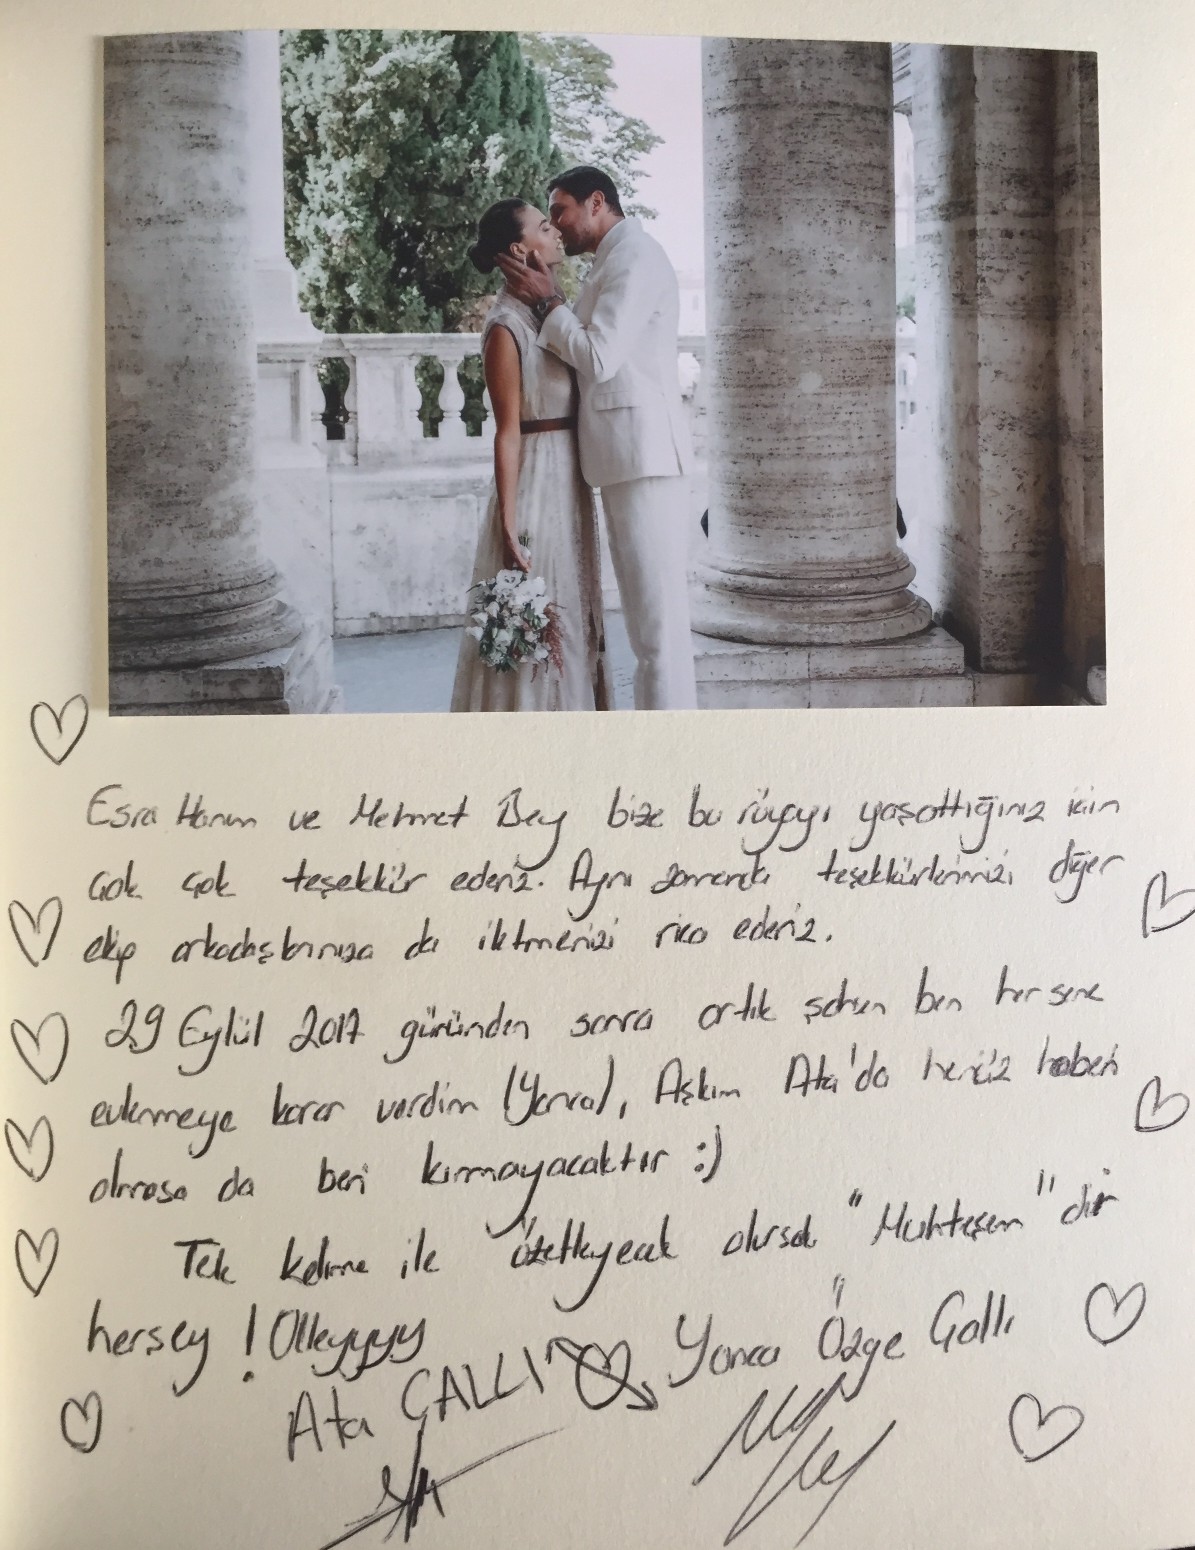 Esra Hanım ve Mehmet Bey bize bu rüyayı yaşattığınız için
çok çok teşekkür ederiz. Aynı zamanda teşekkürlerimizi diğer
ekip arkadaşlarınıza da iletmenizi rica ederiz.
29 Eylül 2017 gününden sonra artık şahsen ben her sene
evlenmeye karar verdim (Yonca), Aşkım Ata'da henüz haberi
olmasa da beni kırmayacaktır :)
Tek kelime ile özetleyecek olursak "Muhteşem" dir
hersey ! Olleyyyy
Ata ÇALLI Yonca Özge Çallı